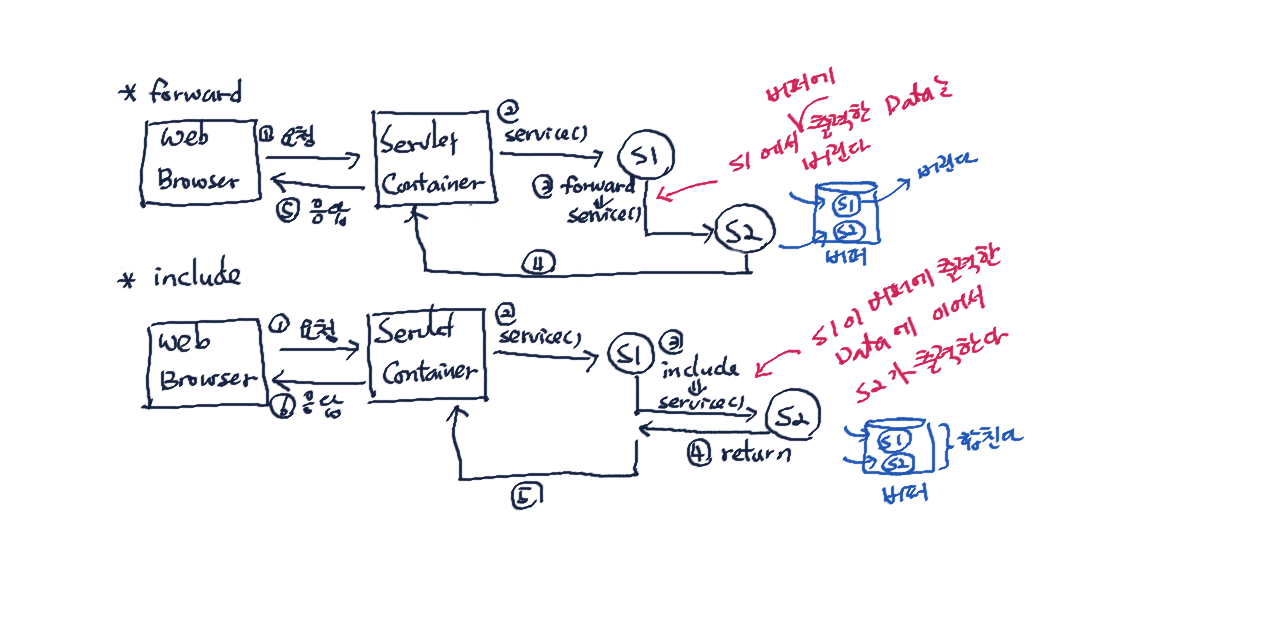 * forward
Web
Browser
① 요청
⑤ 응답
Servlet
Container
②
service()
S1
③ forward
⇓
service()
S2
④
버퍼에
S1 에서 √ 출력한 Data는
버린다
S1
S2
버퍼
버린다
* include
Web
Browser
① 요청
⑥ 응답
Servlet
Container
②
service()
S1
③
include
⇓
service()
S2
④ return
⑤
S1이 버퍼에 출력한
Data에 이어서
S2가 출력한다
S1
S2
버퍼
합친다